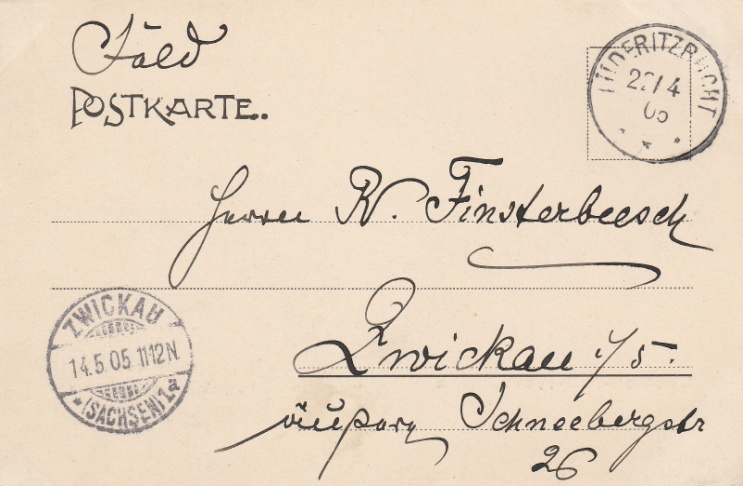 Feld
POSTKARTE.
LÜDERITZBUCHT
22/4
05
Herrn K. Finsterbusch
Zwickau i/S.
ZWICKAU
14.5.05. 11-12N.
*(SACHSEN)1.a
äussere Schneebergstr
26